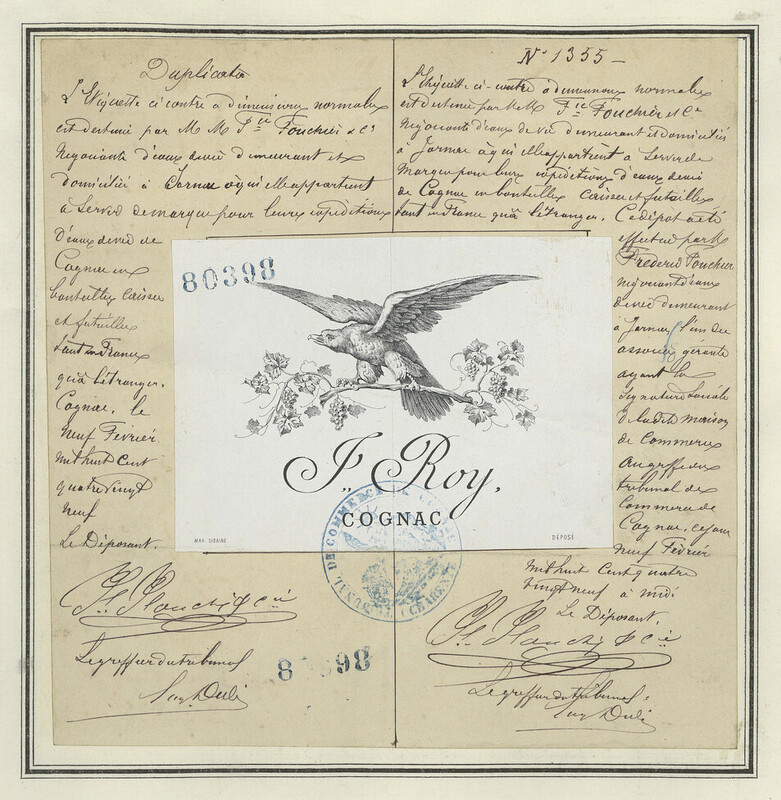 Duplicata
L'Etiquette ci contre a dimensions normales
est destiné par M M Fic Fouchier et Cie
Négociants d'eaux de vie demeurant et
domiciliés à Jarnac à qui elle appartient
à Servir de marque pour leurs expéditions
d'eaux de vie de
Cognac en
bouteilles caisses
et futailles
tant en France
qu'à l'étranger.
Cognac, le
neuf Février
mil huit cent
quatre vingt
neuf
Le Déposant.
Le greffier du tribunal
N° 1355 -
L'Etiquette ci-contre a dimensions normales
est destinée par M M Fic Fouchier et Cie
Négociants d'eaux de vie demeurant et domiciliés
à Jarnac à qui elle appartient a Servir de
Marque pour leurs expéditions d'eaux de vie
de Cognac en bouteilles caisses et futailles
tant en France qu'à l'étranger. Ce dépôt a été
effectué par M
Frédéric Fouchier
négociant d'eaux
de vie demeurant
à Jarnac l'un des
associés gérants
ayant la
signature sociale
de la dite maison
de Commerce
au greffe du
tribunal de
Commerce de
Cognac, ce jour
neuf Février
mil huit Cent quatre
vingt neuf à midi
Le Déposant.
Le greffier du tribunal
80398
Fc Roy,
COGNAC
MAR. SIBAINE
DÉPOSÉ
TRIBUNAL DE COMMERCE
(CHARENTE)
80398